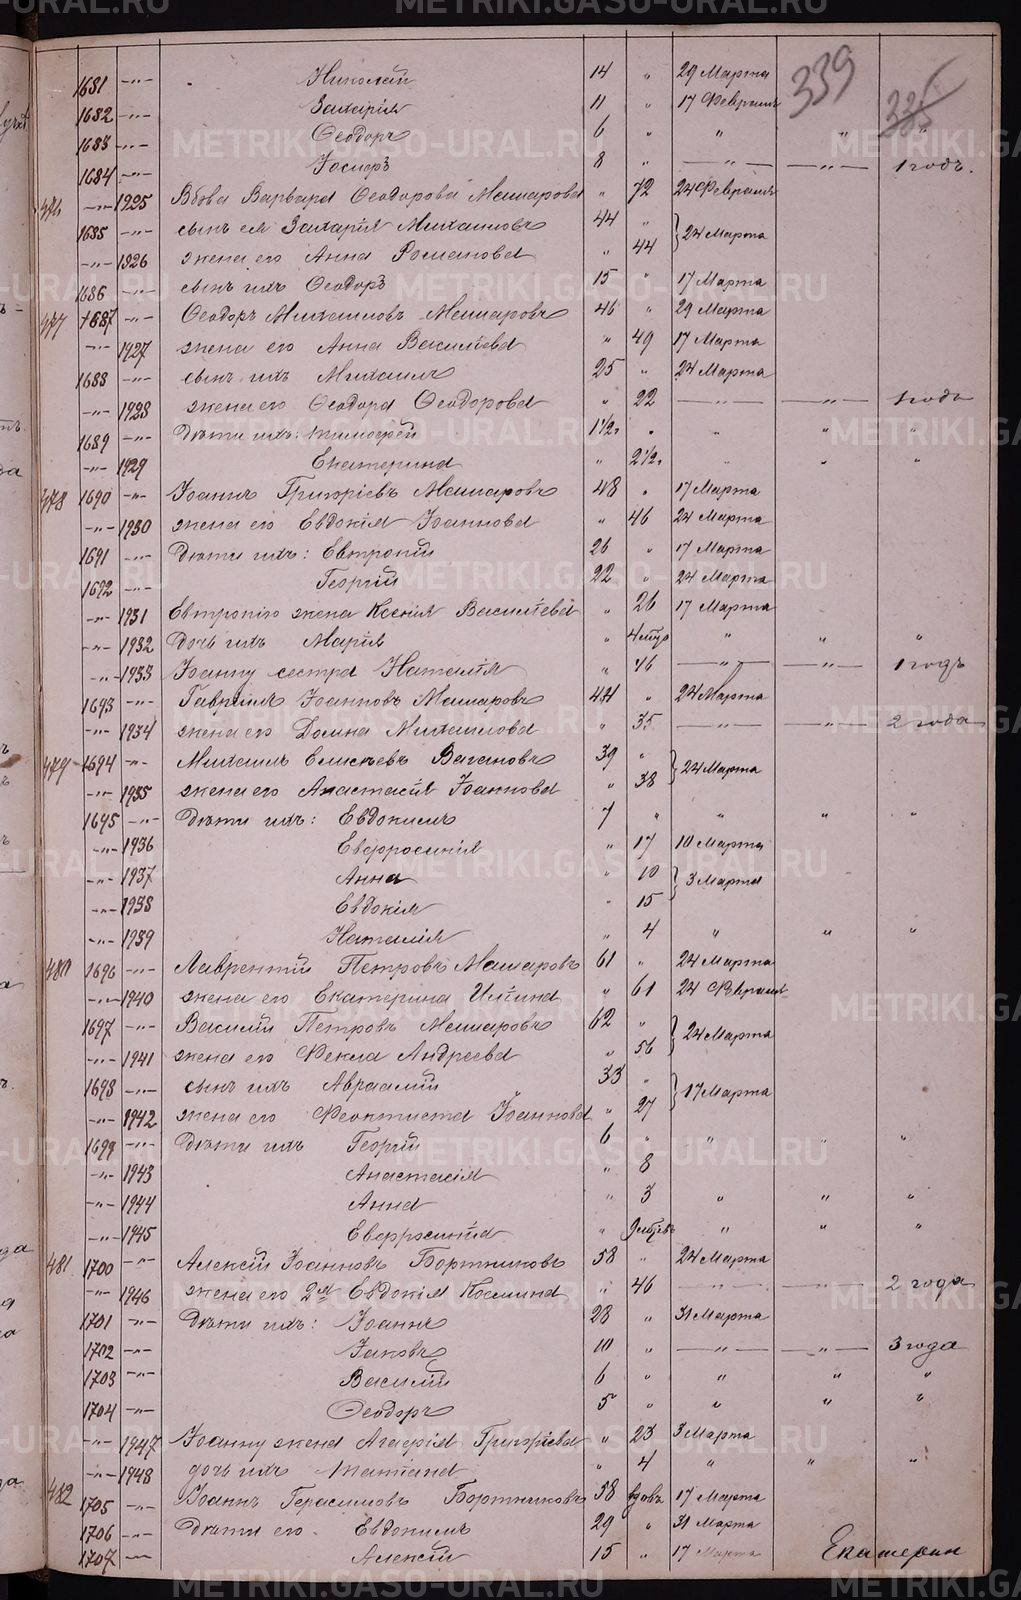 339
335
1681 -„- Николай 14 „ 29 Марта
1682 -„- Захарія 11 „ 17 Февраля
1683 -„- Ѳеодоръ 6 „ „ „ „
1684 -„- Іосифъ 8 „ -„- -„- 1 годъ.
476 -„- 1925 Вдова Варвара Ѳеодорова Машарова „ 72 24 Февраля
1685 -„- сынъ ея Захарія Михаиловъ 44 „ } 24 Марта
-„- 1926 жена его Анна Романова „ 44
1686 -„- сынъ ихъ Ѳеодоръ 15 „ 17 Марта
477 1687 -„- Ѳеодоръ Михаиловъ Машаровъ 46 „ 29 Марта
-„- 1927 жена его Анна Васильева „ 49 17 Марта
1688 -„- сынъ ихъ Михаилъ 25 „ 24 Марта
-„- 1928 жена его Ѳеодора Ѳеодорова „ 22 -„- -„- 1 годъ
1689 -„- Дѣти ихъ: Тимофей 1 1/2 г „ „ „ „
-„- 1929 Екатерина „ 2 1/2 г „ „ „
478 1690 -„- Іоаннъ Григоріевъ Машаровъ 48 „ 17 Марта
-„- 1930 жена его Евдокія Іоаннова „ 46 24 Марта
1691 -„- Дѣти ихъ: Евтропій 26 „ 17 Марта
1692 -„- Георгій 22 „ 24 Марта
-„- 1931 Евтропію жена Ксенія Васильева „ 26 17 Марта
-„- 1932 дочь ихъ Марія „ 4 мѣс „ „ „
-„- 1933 Іоанну сестра Наталія „ 46 -„- -„- 1 годъ
1693 -„- Гавріилъ Іоанновъ Машаровъ 44 „ 24 Марта
-„- 1934 жена его Домна Михаилова „ 35 -„- -„- 2 года
479 1694 -„- Михаилъ Елисѣевъ Вагановъ 39 „ } 24 Марта
-„- 1935 жена его Анастасія Іоаннова „ 38
1695 -„- Дѣти ихъ: Евдокимъ 7 „ „ „ „
-„- 1936 Евфросинія „ 17 10 Марта
-„- 1937 Анна „ 10 } 3 Марта
-„- 1938 Евдокія „ 15
-„- 1939 Наталія „ 4 „ „ „
480 1696 -„- Лаврентій Петровъ Машаровъ 61 „ 24 Марта
-„- 1940 жена его Екатерина Ильина „ 61 24 Февраля
1697 -„- Василій Петровъ Машаровъ 62 „ } 24 Марта
-„- 1941 жена его Фекла Андреева „ 56
1698 -„- сынъ ихъ Авраамій 33 „ } 17 Марта
-„- 1942 жена его Феоктиста Іоаннова „ 27
1699 -„- Дѣти ихъ Георгій 6 „ „ „ „
-„- 1943 Анастасія „ 8
-„- 1944 Анна „ 3 „ „ „
-„- 1945 Евфросинія „ 9 мѣсяцевъ „ „ „
481 1700 -„- Алексій Іоанновъ Бортниковъ 58 „ 24 Марта
-„- 1946 жена его 2я Евдокія Космина „ 46 -„- -„- 2 года
1701 -„- Дѣти ихъ: Іоаннъ 28 „ 31 Марта
1702 -„- Іаковъ 10 „ -„- -„- 3 года
1703 -„- Василій 6 „ „ „ „
1704 -„- Ѳеодоръ 5 „ „ „ „
-„- 1947 Іоанну жена Агафія Григорьева „ 23 3 Марта
-„- 1948 дочь ихъ Татіана „ 4 „ „ „
482 1705 -„- Іоаннъ Герасимовъ Бортниковъ 58 вдовъ 17 Марта
1706 -„- Дѣти его. Евдокимъ 29 „ 31 Марта
1707 -„- Алексій 15 „ 17 Марта
Екатерин
METRIKI.GASO-URAL.RU